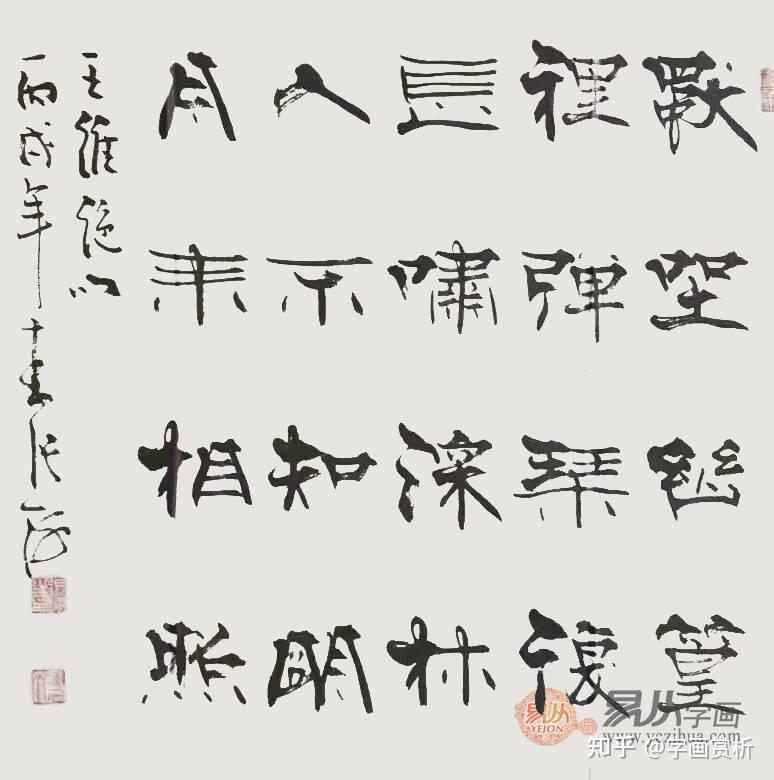 獨坐幽篁
裡彈琹復
長嘯深林
人不知明
月来相照
王維
丙戌年
易从
YEJON
易从字画
www.yczihua.com
知乎 @字画赏析